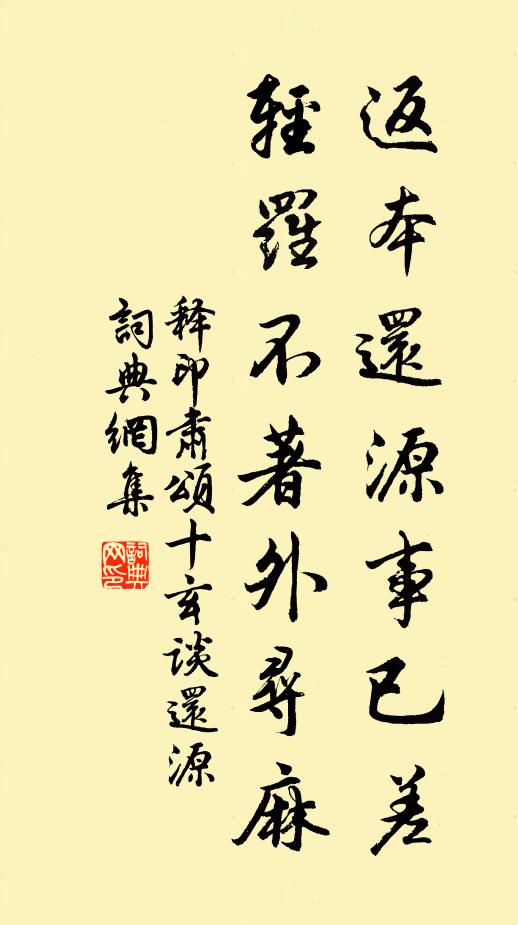 返本還源事已差
輕羅不著外尋麻
释印肅頌十玄談還源
詞典網集
詞典网印